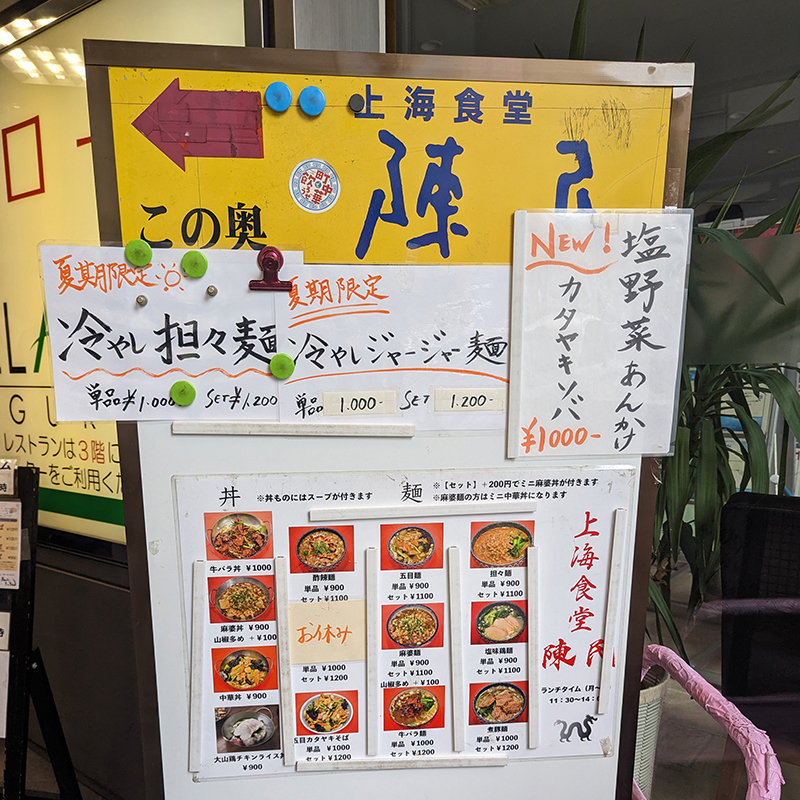 上海食堂
陳
町中華で飲ろう
この奥
夏期限定
冷やし担々麺
単品¥1.000
SET¥1.200
夏期限定
冷やしジャージャー麺
単品 1.000-
SET 1.200-
NEW!
塩野菜あんかけ
カタヤキソバ
¥1000-
丼 ※丼ものにはスープが付きます
麺 ※【セット】+200円でミニ麻婆丼が付きます
※麻婆麺の方はミニ中華丼になります
牛バラ丼 ¥1000
麻婆丼 ¥900
山椒多め +¥100
中華丼 ¥900
大山鶏チキンライス
¥900
酢辣麺
単品 ¥900
セット ¥1100
お休み
単品 ¥1000
セット ¥1200
五目カタヤキそば
単品 ¥1000
セット ¥1200
五目麺
単品 ¥900
セット ¥1100
麻婆麺
単品 ¥900
セット ¥1100
山椒多め +¥100
牛バラ麺
単品 ¥1000
セット ¥1200
担々麺
単品 ¥900
セット ¥1100
塩味鶏麺
単品 ¥900
セット ¥1100
煮豚麺
単品 ¥1000
セット ¥1200
上海食堂
陳
ランチタイム(月~
11:30~14:
レストランは3階に
ターをご利用くだ